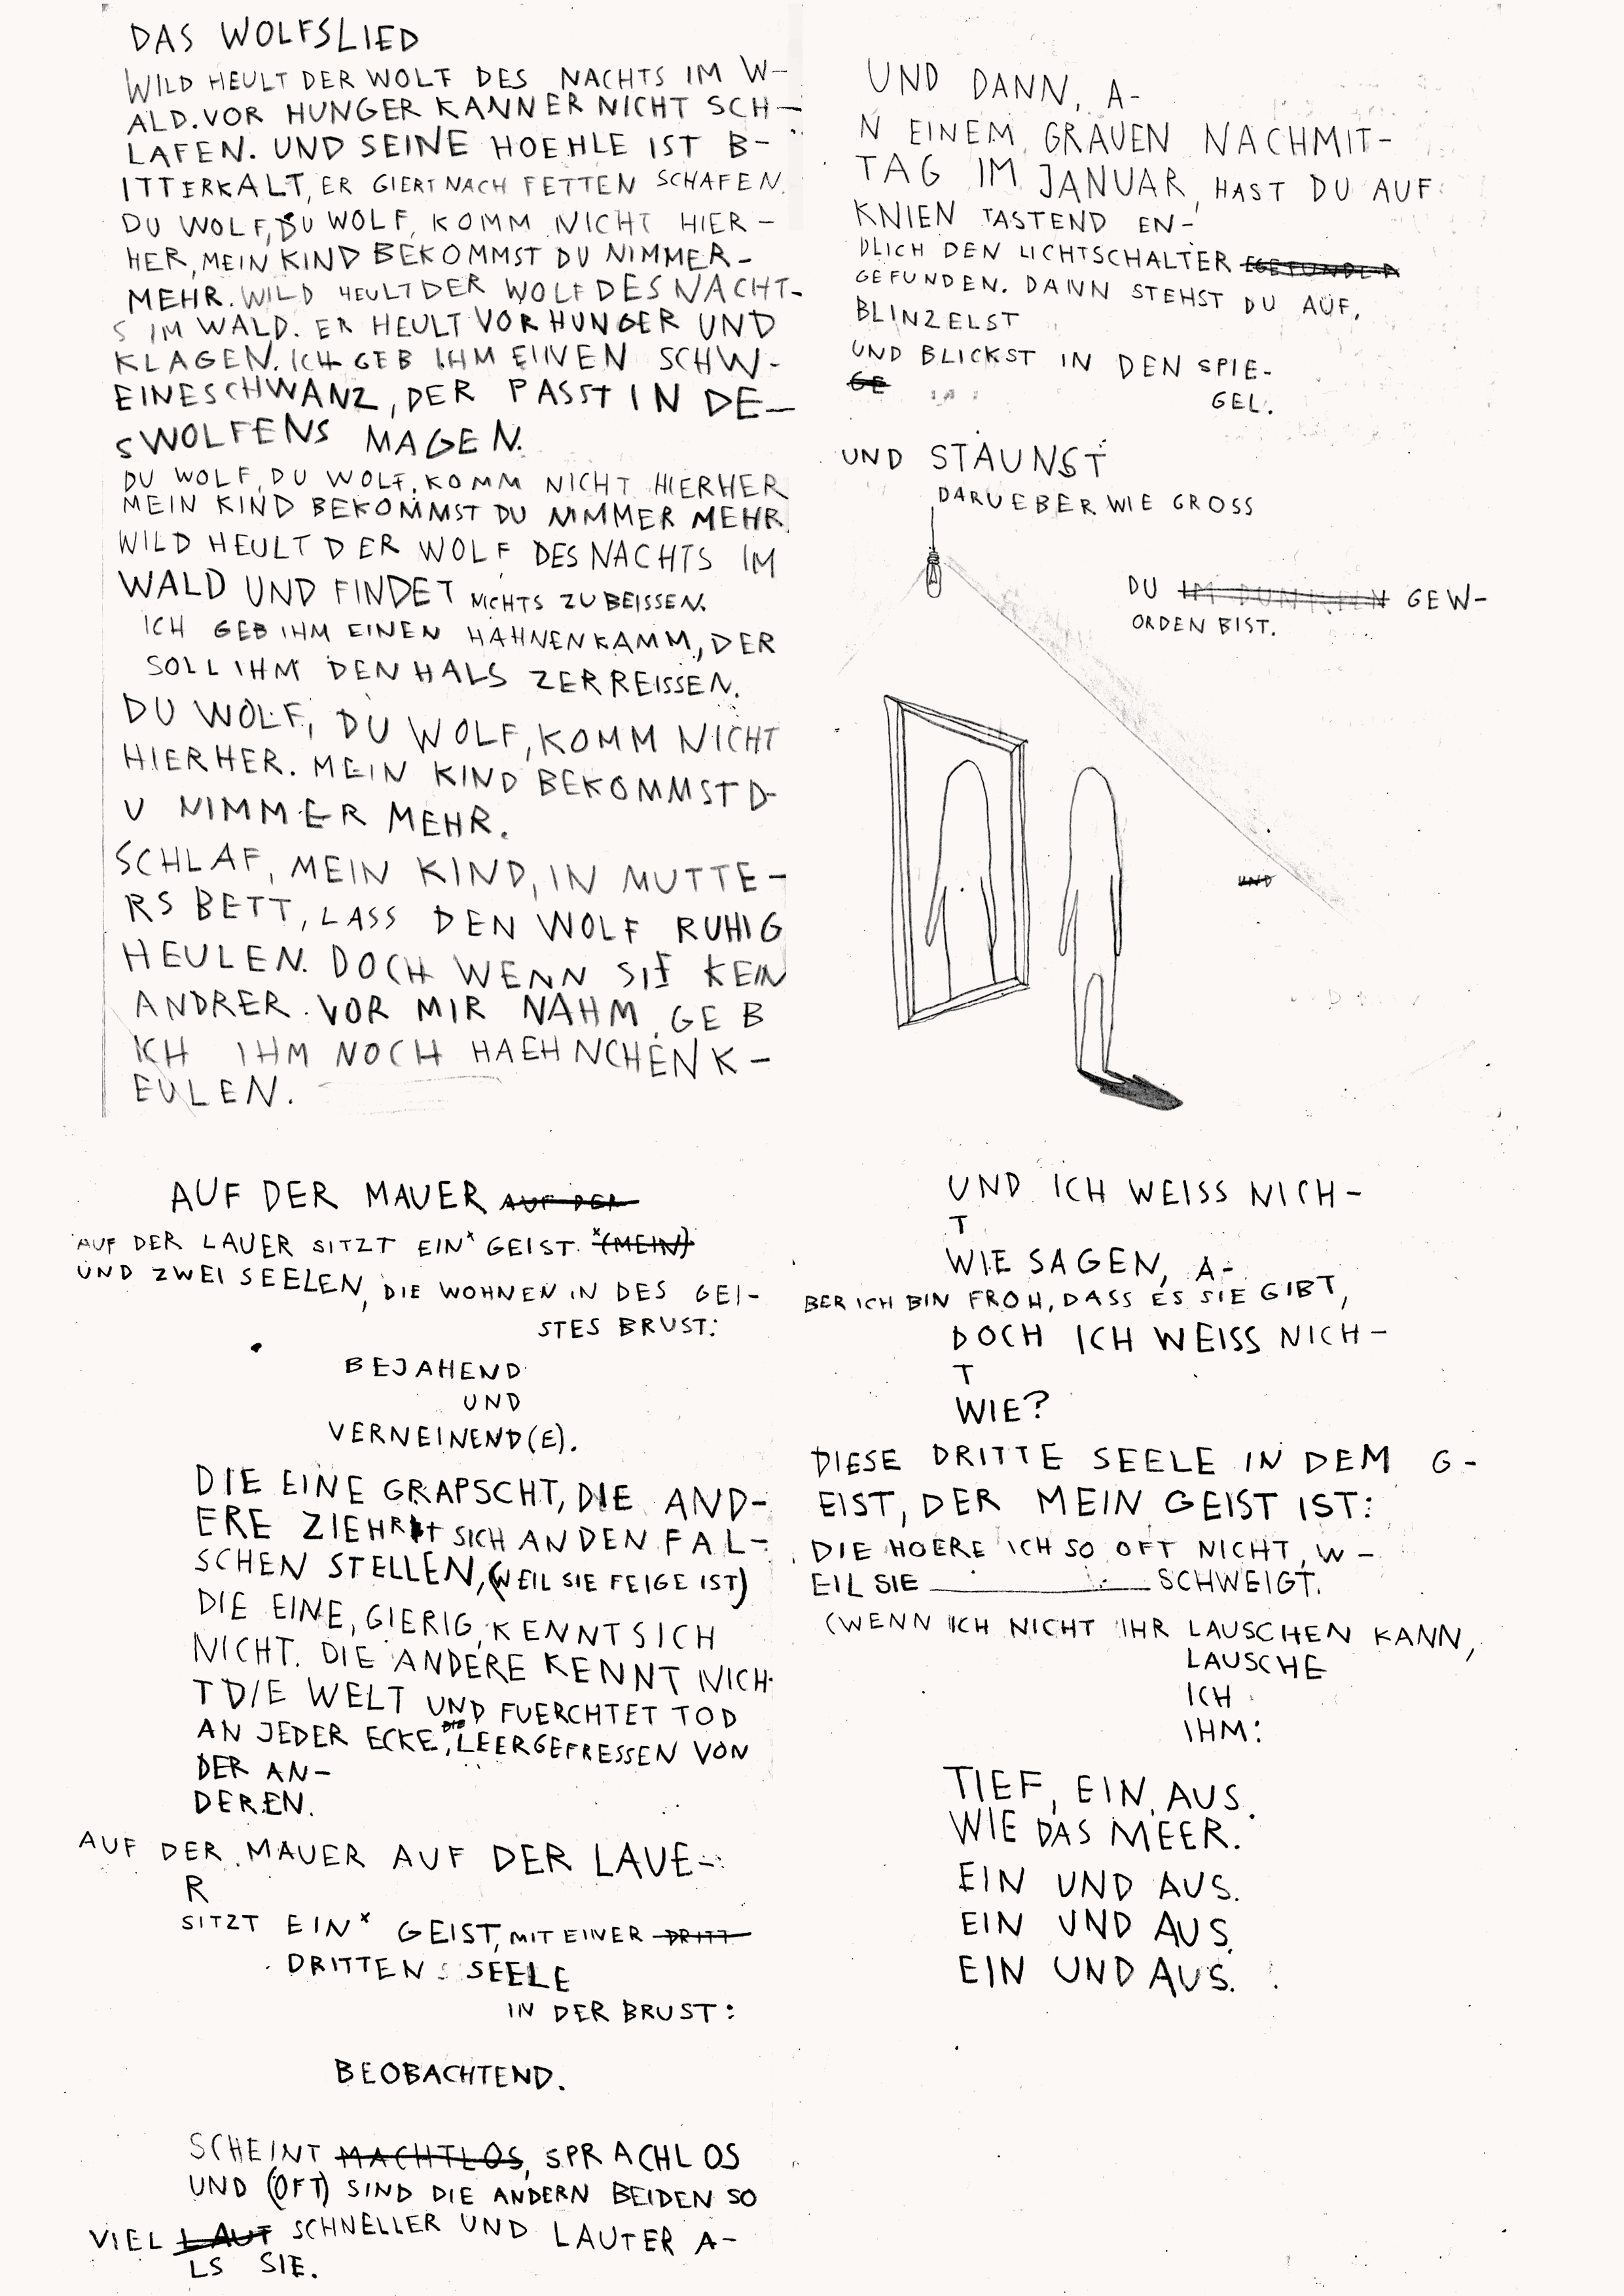 DAS WOLFSLIED
WILD HEULT DER WOLF DES NACHTS IM W-
ALD. VOR HUNGER KANN ER NICHT SCH-
LAFEN. UND SEINE HOEHLE IST B-
ITTERKALT, ER GIERT NACH FETTEN SCHAFEN.
DU WOLF, DU WOLF, KOMM NICHT HIER-
HER, MEIN KIND BEKOMMST DU NIMMER-
MEHR. WILD HEULT DER WOLF DES NACHT-
S IM WALD. ER HEULT VOR HUNGER UND
KLAGEN. ICH GEB IHM EINEN SCHW-
EINESCHWANZ, DER PASST IN DE-
S WOLFENS MAGEN.
DU WOLF, DU WOLF, KOMM NICHT HIERHER
MEIN KIND BEKOMMST DU NIMMER MEHR
WILD HEULT DER WOLF DES NACHTS IM
WALD UND FINDET NICHTS ZU BEISSEN.
ICH GEB IHM EINEN HAHNENKAMM, DER
SOLL IHM DEN HALS ZERREISSEN.
DU WOLF, DU WOLF, KOMM NICHT
HIERHER. MEIN KIND BEKOMMST D-
U NIMMER MEHR.
SCHLAF, MEIN KIND, IN MUTTE-
RS BETT, LASS DEN WOLF RUHIG
HEULEN. DOCH WENN SIE KEIN
ANDRER VOR MIR NAHM, GEB
ICH IHM NOCH HAEHNCHENK-
EULEN.
UND DANN, A-
N EINEM GRAUEN NACHMIT-
TAG IM JANUAR, HAST DU AUF
KNIEN TASTEND EN-
DLICH DEN LICHTSCHALTER GEFUNDEN
GEFUNDEN. DANN STEHST DU AUF,
BLINZELST
UND BLICKST IN DEN SPIE-
GE
GEL.
UND STAUNST
DARUEBER WIE GROSS
DU IM DUNKELN GEW-
ORDEN BIST.
UND
AUF DER MAUER AUF DER
AUF DER LAUER SITZT EIN* GEIST. *(MEIN)
UND ZWEI SEELEN, DIE WOHNEN IN DES GEI-
STES BRUST:
BEJAHEND
UND
VERNEINEND(E).
DIE EINE GRAPSCHT, DIE AND-
ERE ZIEHRT SICH AN DEN FAL-
SCHEN STELLEN, (WEIL SIE FEIGE IST)
DIE EINE, GIERIG, KENNT SICH
NICHT. DIE ANDERE KENNT NICH-
T DIE WELT UND FUERCHTET TOD
AN JEDER ECKE, DIE LEERGEFRESSEN VON
DER AN-
DEREN.
AUF DER MAUER AUF DER LAUE-
R
SITZT EIN* GEIST, MIT EINER DRITT
DRITTEN SEELE
IN DER BRUST:
BEOBACHTEND.
SCHEINT MACHTLOS, SPRACHLOS
UND (OFT) SIND DIE ANDERN BEIDEN SO
VIEL LAUT SCHNELLER UND LAUTER A-
LS SIE.
UND ICH WEISS NICH-
T
WIE SAGEN, A-
BER ICH BIN FROH, DASS ES SIE GIBT,
DOCH ICH WEISS NICH-
T
WIE?
DIESE DRITTE SEELE IN DEM G-
EIST, DER MEIN GEIST IST:
DIE HOERE ICH SO OFT NICHT, W-
EIL SIE ________ SCHWEIGT.
(WENN ICH NICHT IHR LAUSCHEN KANN,
LAUSCHE
ICH
IHM:
TIEF, EIN, AUS.
WIE DAS MEER.
EIN UND AUS.
EIN UND AUS.
EIN UND AUS.